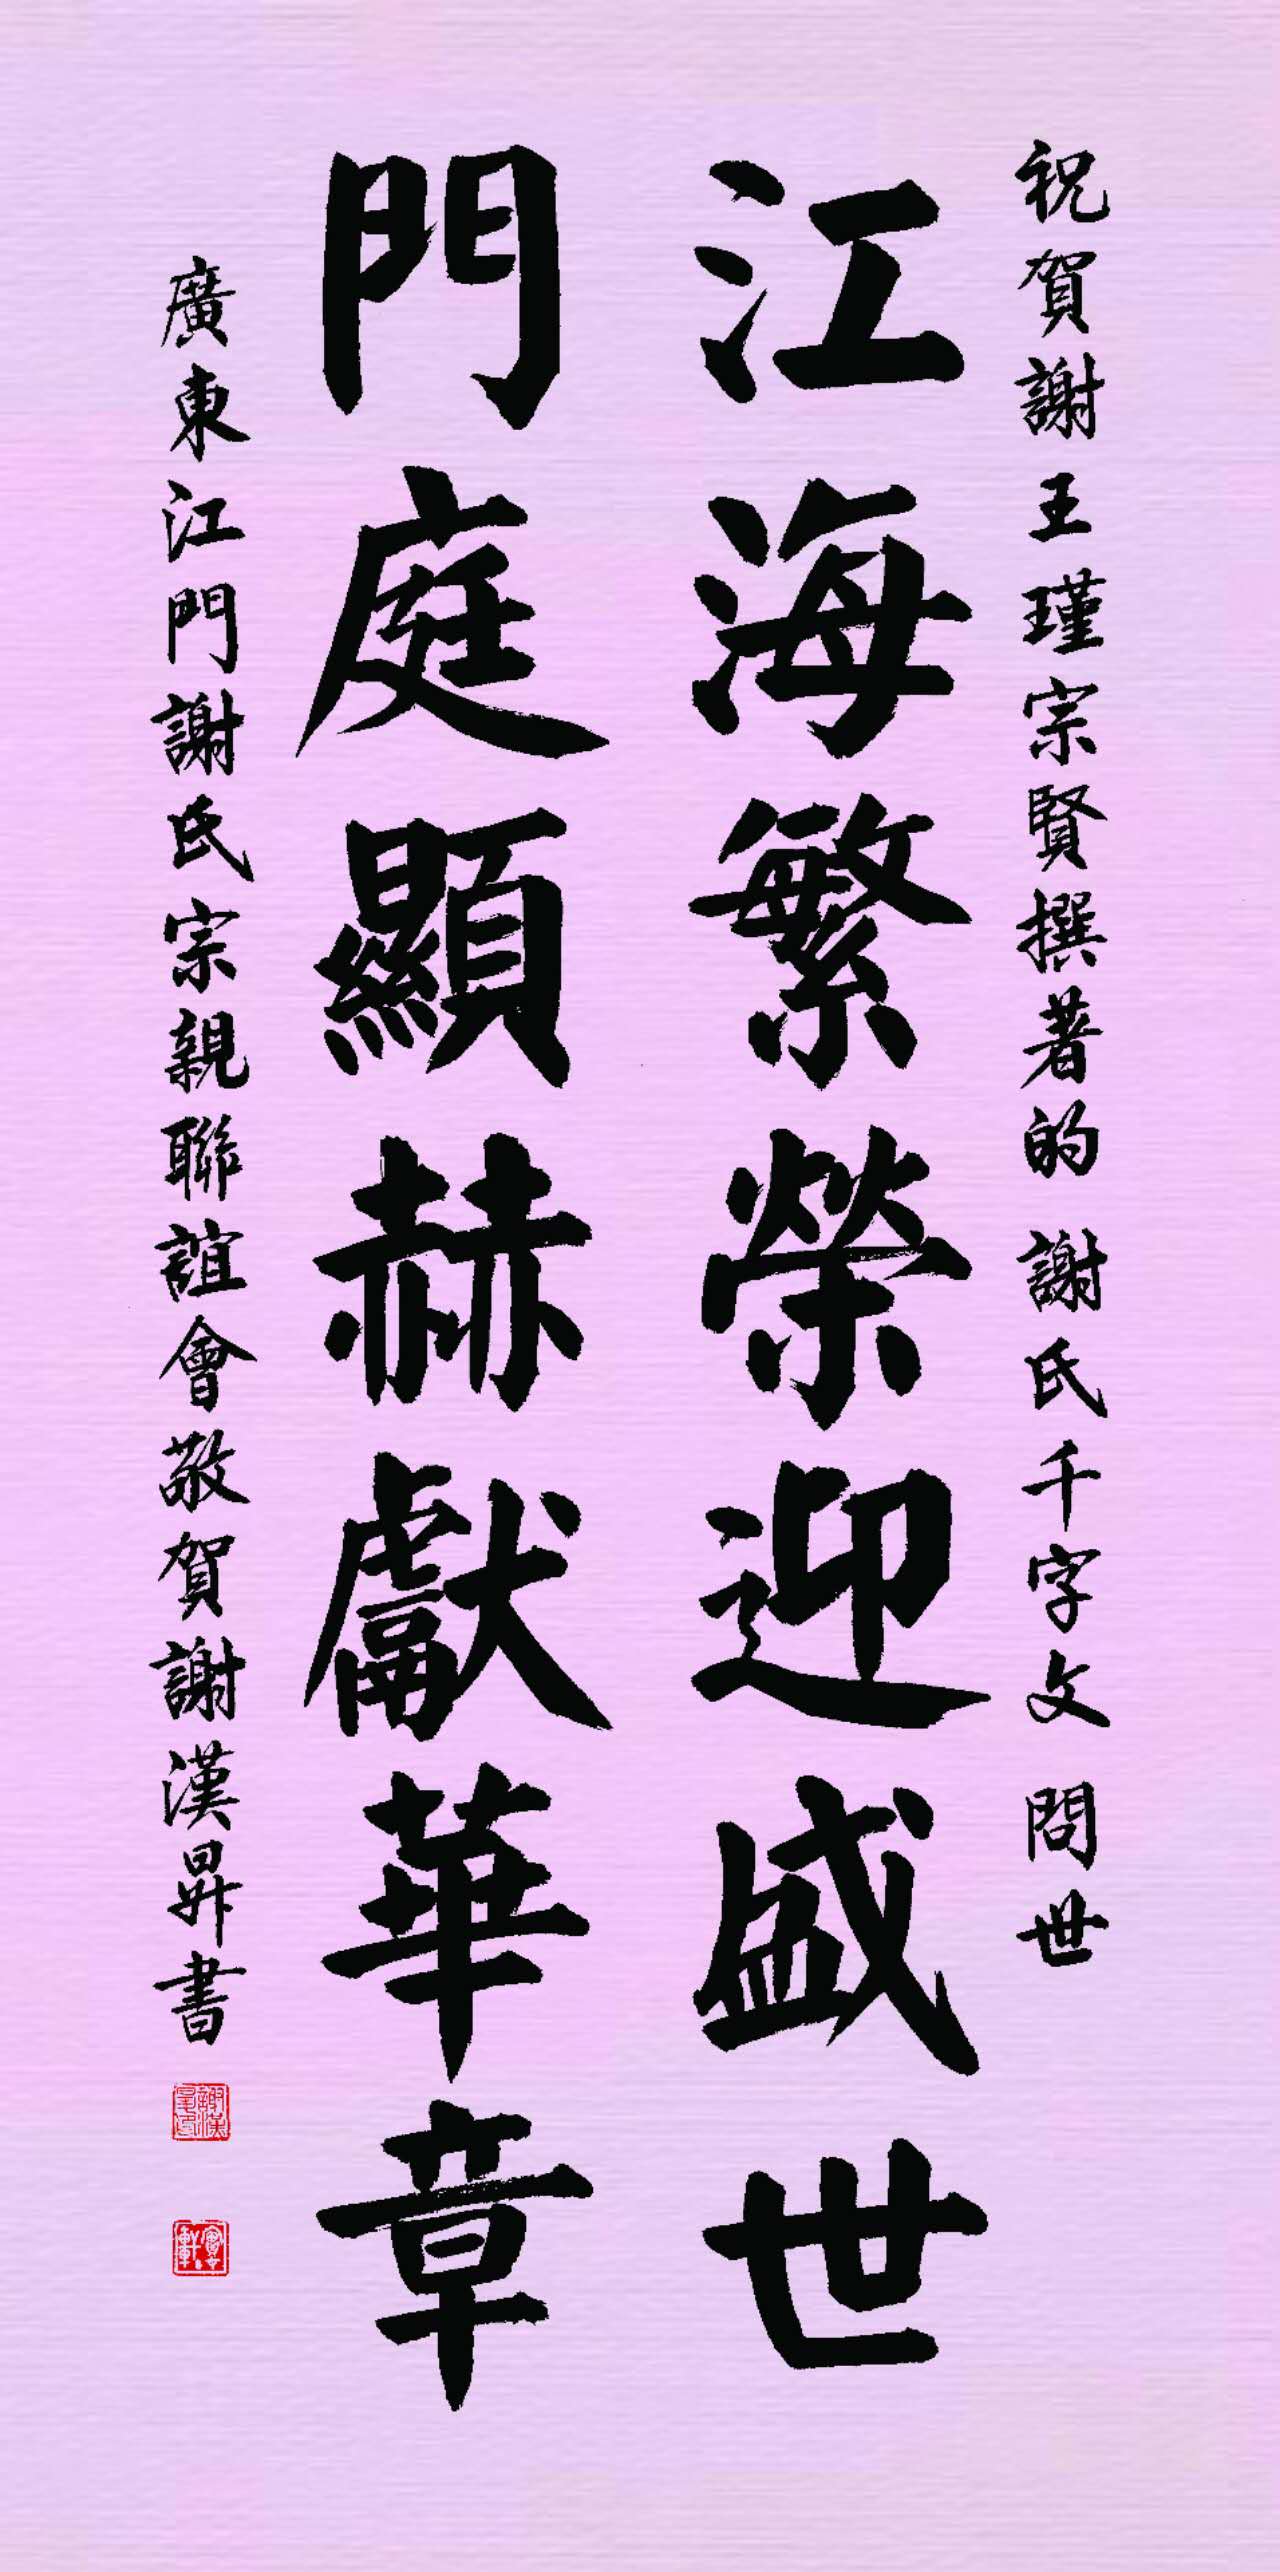 祝賀謝王瑾宗賢撰著的 謝氏千字文 問世
江海繁榮迎盛世
門庭顯赫獻華章
廣東江門謝氏宗親聯誼會敬賀謝漢昇書